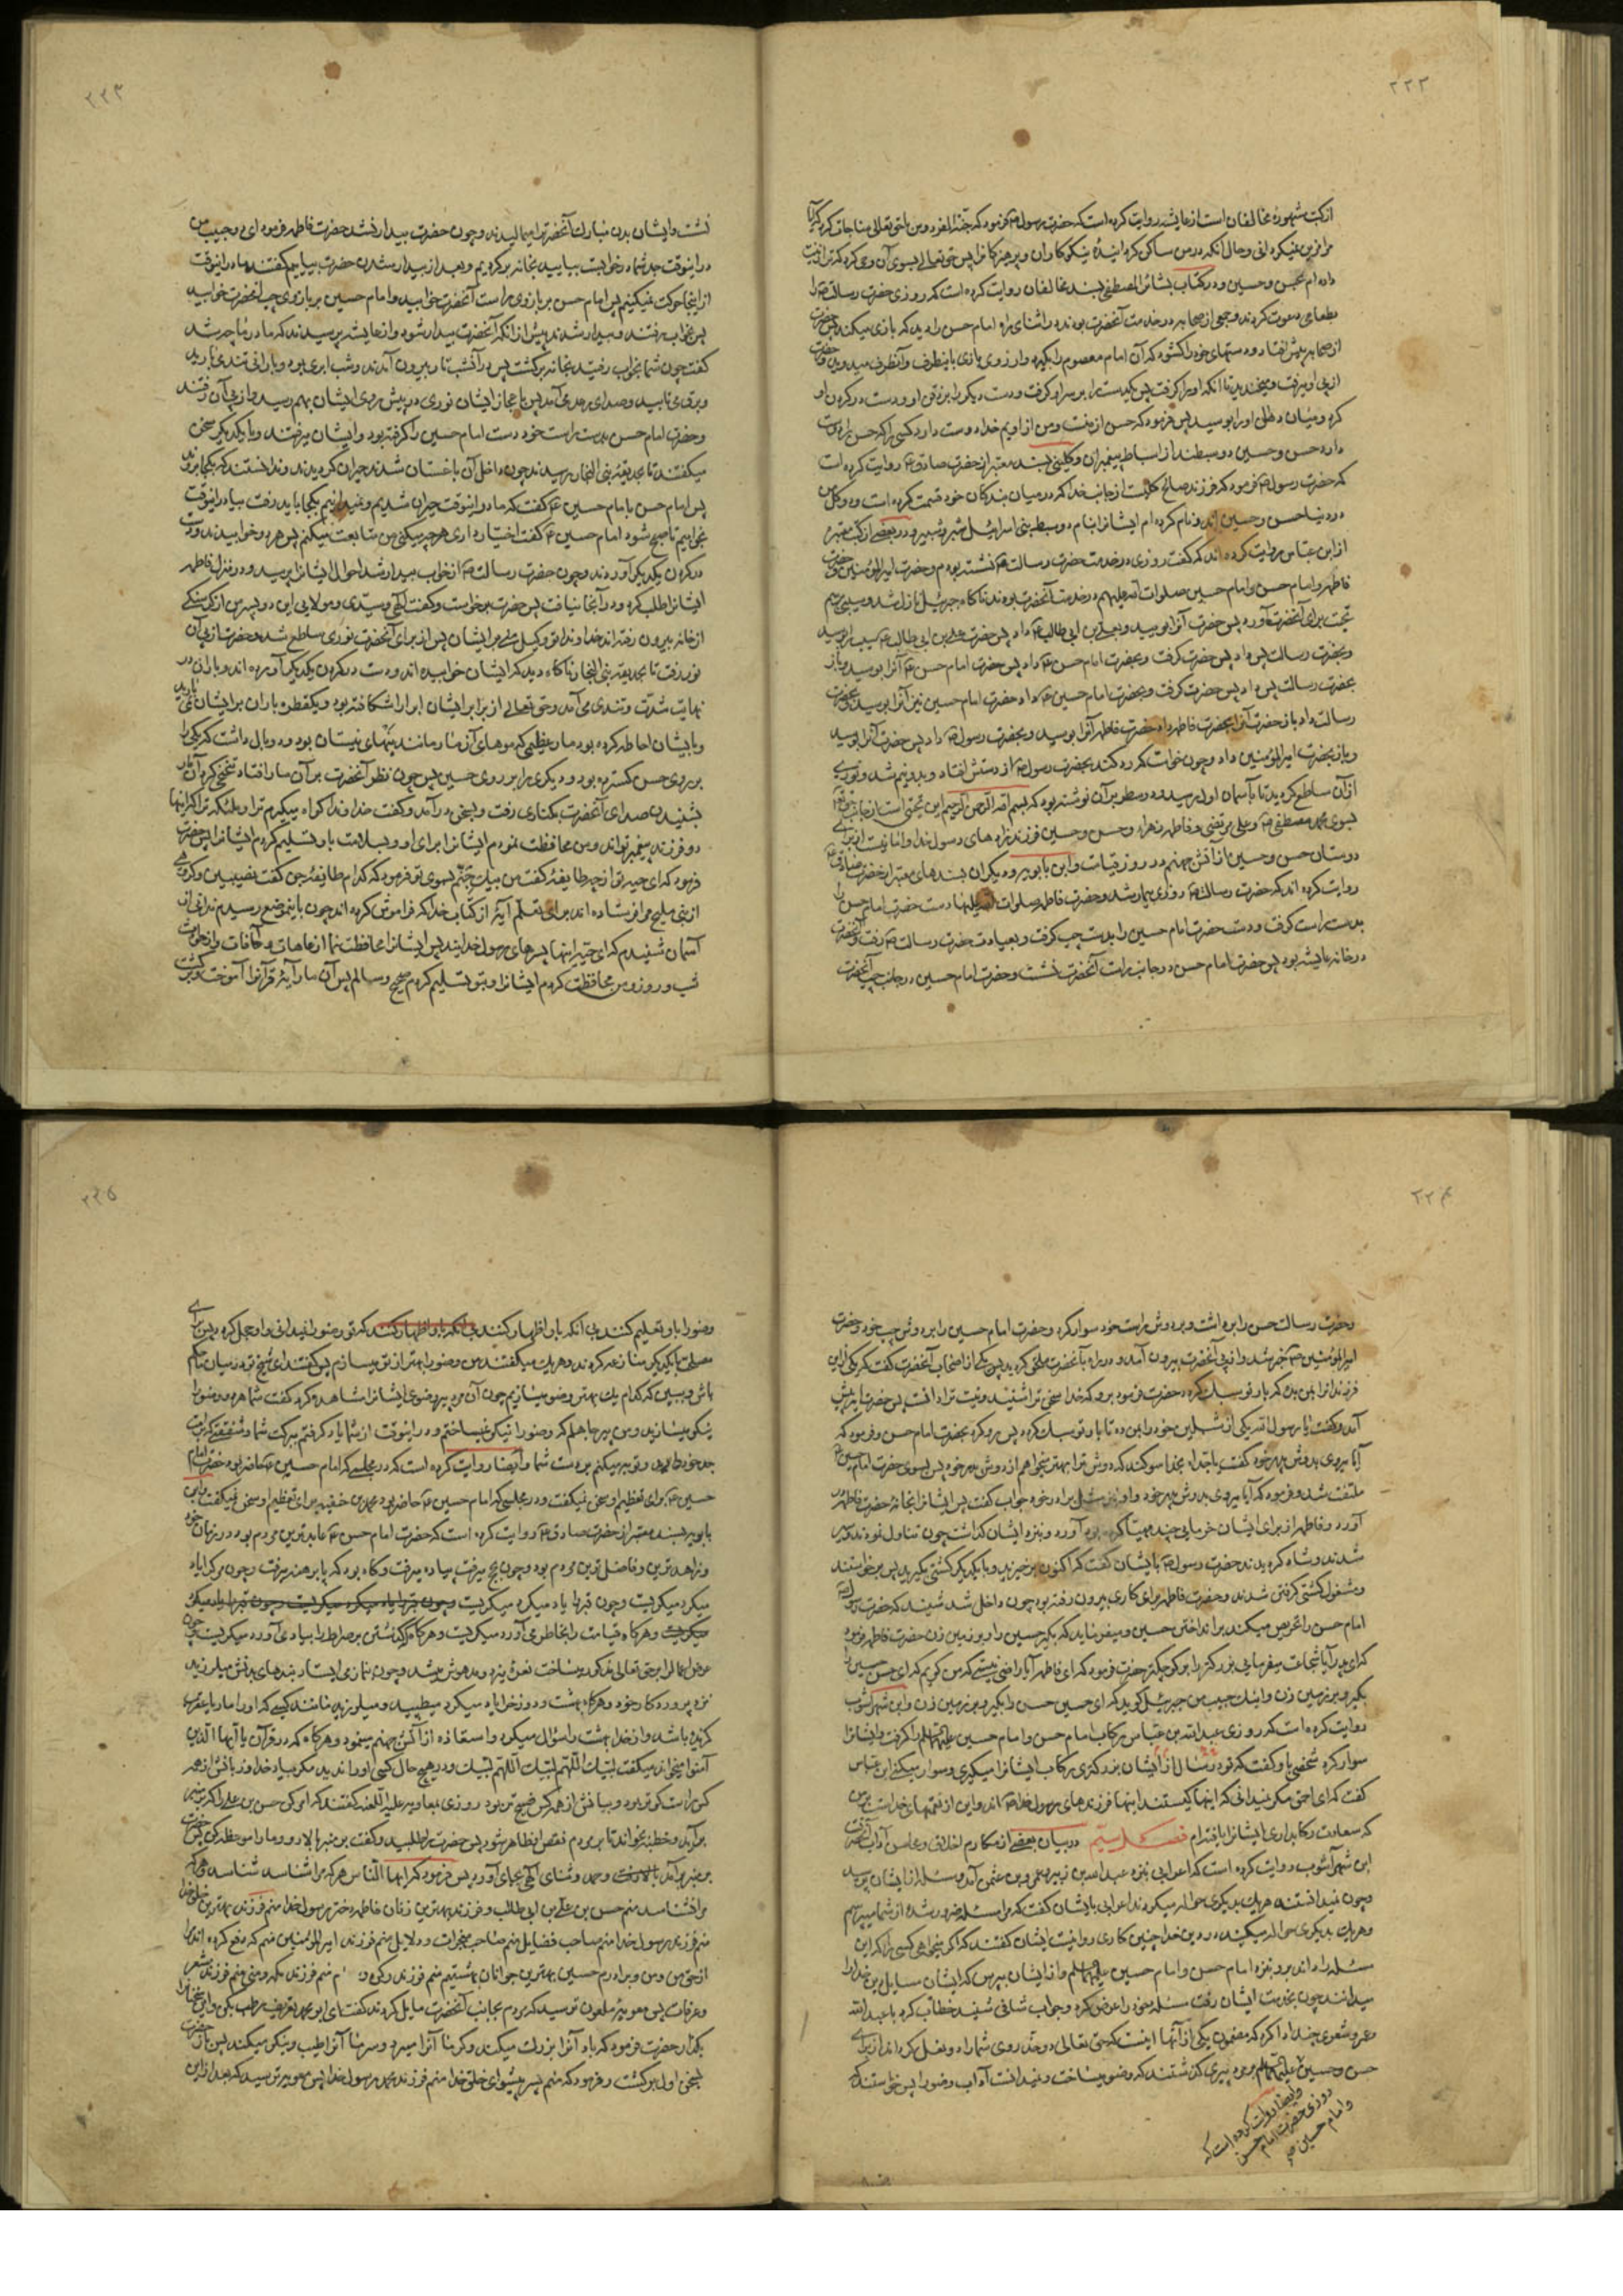 ۲۲۲
از کتب مشهورهٔ مخالفان است از عایشه روایت کرده است که حضرت رسول ص فرمود که جنة الفردوس با حق تعالی مناجات کرد که آیا
مرا زینت نمیکردانی و حال آنکه در من ساکن کردانیدهٔ نیکوکاران و پرهیزکاران پس حق تعالی بسوی آن وحی کرد که ترا زینت
داده ام بحسن و حسین و در کتاب بشائر المصطفی بسند مخالفان روایت کرده است که روزی حضرت رسالت ص را
بطعامی دعوت کردند و جمعی از صحابه در خدمت آنحضرت بودند در اثنای راه امام حسن را دید که بازی میکند پس حضرت
از صحابه پیش افتاد و دستهای خود را کشود که آن امام معصوم را بگیرد و از روی بازی باینطرف و آنطرف میدوید و حضرت
از پی او میرفت و میخندید تا آنکه او را گرفت پس یکدست را بر سر او گرفت و دست دیگر را بر ذقن او و دست در گردن او
کرد و میان دهان او را بوسید پس فرمود که حسن از منست و من از اویم خدا دوست دارد کسی را که حسن را دوست
دارد حسن و حسین دو سبطند از اسباط پیغمبران و کلینی بسند معتبر از حضرت صادق ع روایت کرده است
که حضرت رسول ص فرمود که فرزند صالح کلیست از جانب خدا که در میان بندکان خود قسمت کرده است و دو گل من
در دنیا حسن و حسین اند و نام کرده ام ایشانرا بنام دو سبط بنی اسرائیل شبر و شبیر و در بعضی از کتب معتبره
از ابن عباس روایت کرده اند که گفت روزی در خدمت حضرت رسالت ص نشسته بودم و حضرت امیر المؤمنین و حضرت
فاطمه و امام حسن و امام حسین صلوات الله علیهم در خدمت آنحضرت بودند ناکاه جبرئیل نازل شد و سیبی برسم
تحیت برای آنحضرت آورد پس حضرت آنرا بوسید و بعلی بن ابی طالب ع داد پس حضرت علی بن ابی طالب ع سیب را بوسید
و بحضرت رسالت پس داد پس حضرت گرفت و بحضرت امام حسن ع داد پس حضرت امام حسن ع آنرا بوسید و باز
بحضرت رسالت پس داد پس حضرت گرفت و بحضرت امام حسین ع داد حضرت امام حسین نیز آنرا بوسید و بحضرت
رسالت داد باز حضرت آنرا بحضرت فاطمه داد حضرت فاطمه آنرا بوسید و بحضرت رسول ص داد پس حضرت آنرا بوسید
و باز بحضرت امیر المؤمنین داد و چون خواست که رد کند بحضرت رسول ص از دستش افتاد و بدو نیم شد و نوری
از آن ساطع کردید تا بآسمان اول رسید و دو سطر بر آن نوشته بود که بسم الله الرحمن الرحیم این تحیتی است از جانب حق تعالی
بسوی محمد مصطفی ص و علی مرتضی و فاطمه زهرا و حسن و حسین فرزندزاده های رسول خدا و امانیست از برای
دوستان حسن و حسین از آتش جهنم در روز قیامت و ابن بابویه و دیگران بسندهای معتبر از حضرت صادق ع
روایت کرده اند که حضرت رسالت ص روزی بیمار شد و حضرت فاطمه صلوات الله علیها دست حضرت امام حسن را
بدست راست گرفت و دست حضرت امام حسین را بدست چپ گرفت و بعیادت حضرت رسالت ص رفت و آنحضرت
در خانه عایشه بود پس حضرت امام حسن در جانب راست آنحضرت نشست و حضرت امام حسین در جانب چپ آنحضرت
۲۲۳
نشست و ایشان بدن مبارک آنحضرترا میمالیدند و چون حضرت بیدار نشد حضرت فاطمه فرمود ای دو حبیب من
در اینوقت جد شما در خوابست بیایید بخانه برکردیم و بعد از بیدار شدن حضرت بیاییم گفتند ما در اینوقت
از اینجا حرکت نمیکنیم پس امام حسن بر بازوی راست آنحضرت خوابید و امام حسین بر بازوی چپ آنحضرت خوابید
پس بخواب رفتند و بیدار شدند پیش از انکه آنحضرت بیدار شود و از عایشه پرسیدند که مادر ما چه شد
گفت چون شما بخواب رفتید بخانه برکشت پس در آنشب تار بیرون آمدند و شب ابری بود و باران تندی میبارید
و برق میتابید و صدای رعد می آمد پس باعجاز ایشان نوری در پیش روی ایشان بهم رسید و از پی آن رفتند
و حضرت امام حسن بدست راست خود دست امام حسین را گرفته بود و ایشان میرفتند و با یکدیگر سخن
میگفتند تا بحدیقه بنی النجار رسیدند چون داخل آن باغستان شدند حیران کردیدند و ندانستند که بکجا بروند
پس امام حسن بامام حسین ع گفت که ما در اینوقت حیران شدیم و نمیدانیم بکجا باید رفت بیا در اینوقت
بخوابیم تا صبح شود امام حسین ع گفت اختیار داری هر چه میکنی من متابعت میکنم پس هر دو خوابیدند و دست
در گردن یکدیگر آوردند و چون حضرت رسالت ص از خواب بیدار شد احوال ایشانرا پرسید و در منزل فاطمه
ایشانرا طلب کرد و در آنجا نیافت پس حضرت برخواست و گفت الهی و سیدی و مولایی این دو پسر من از گرسنگی
از خانه بیرون رفته اند خداوندا تو وکیل منی بر ایشان پس از برای آنحضرت نوری ساطع شد و حضرت از پی آن
نور رفت تا بحدیقه بنی النجار ناکاه دید که ایشان خوابیده اند و دست در گردن یکدیگر آورده اند و باران در
نهایت شدت و تندی می آمد و حق تعالی از برابر ایشان ابر را شکافته بود و یکقطره باران بر ایشان نمی بارید
و بایشان احاطه کرده بود مار عظیمی که موهای آن مار مانند نیهای نیستان بود و دو بال داشت که یکی را
بر روی حسن کسترده بود و دیگری را بر روی حسین پس چون نظر آنحضرت بر آن مار افتاد تنحنحی کرد آن مار
بشنیدن صدای آنحضرت بکناری رفت و بسخن در آمد و گفت خداوندا گواه میگیرم ترا و ملائکه ترا که اینها
دو فرزند پیغمبر تواند و من محافظت نمودم ایشانرا برای او و بسلامت باو تسلیم کردم ایشانرا پس حضرت
فرمود که ای حیه تو از چه طایفهٔ گفت من پیک جنم بسوی تو فرمود که کدام طایفهٔ جن گفت نصیبین و گروهی
از بنی ملیح مرا فرستاده اند برای تعلم آیهٔ از کتاب خدا که فراموش کرده اند چون باینموضع رسیدم ندایی از
آسمان شنیدم که ای حیه اینها پسرهای رسول خدایند پس ایشانرا محافظت نما از عاهات و آفات و از حوادث
شب و روز و من محافظت کردم ایشانرا و بتو تسلیم کردم صحیح و سالم پس آن مار آیهٔ قرآنرا آموخت و برکشت
۲۲۴
و حضرت رسالت حسن را برداشت و بر دوش راست خود سوار کرد و حضرت امام حسین را بر دوش چپ خود و حضرت
امیر المؤمنین ع خبر شد و از پی آنحضرت بیرون آمد و در راه بآنحضرت ملحق کردید پس یکی از اصحاب آنحضرت گفت که یکی از این
فرزندانرا بمن ده که بار تو سبک کردد حضرت فرمود برو که خدا سخن ترا شنید و نیت ترا دانست پس حضرت امیر پیش
آمد و گفت یا رسول الله یکی از شبلین خود را بمن ده تا بار تو سبک کردد پس رو کرد بحضرت امام حسن و فرمود که
آیا میروی بدوش پدر خود گفت یا جداه بخدا سوگند که دوش ترا بهتر میخواهم از دوش پدر خود پس بسوی حضرت امام حسین ع
ملتفت شد و فرمود که آیا میروی بدوش پدر خود و او نیز مثل برادر خود جواب گفت پس ایشانرا بخانهٔ حضرت فاطمه
آورد و فاطمه از برای ایشان خرمایی چند مهیا کرده بود آورد و نزد ایشان گذاشت چون تناول نمودند و سیر
شدند و شاد کردیدند حضرت رسول ص بایشان گفت که اکنون برخیزید و با یکدیگر کشتی بگیرید پس برخواستند
و مشغول کشتی گرفتن شدند و حضرت فاطمه برای کاری بیرون رفته بود چون داخل شد شنید که حضرت رسول ص
امام حسن را تحریص میکند بر انداختن حسین و میفرماید که بگیر حسین را و بر زمین زن حضرت فاطمه فرمود
که ای پدر آیا شجاعت میفرمایی بزرگتر را بر کوچکتر حضرت فرمود که ای فاطمه آیا راضی نیستی که من گویم که ای حسن حسین را
بگیر و بر زمین زن و اینک حبیب من جبرئیل گوید که ای حسین حسن را بگیر و بر زمین زن و ابن شهر آشوب
روایت کرده است که روزی عبد الله بن عباس رکاب امام حسن و امام حسین علیهما السلم را گرفت و ایشانرا
سوار کرد شخصی باو گفت که تو در سال از ایشان بزرگتری رکاب ایشانرا میگیری و سوار میکنی ابن عباس
گفت که ای احمق مگر نمیدانی که اینها کیستند اینها فرزندهای رسول خدا ص اند و این از نعمتهای خداست بر من
که سعادت رکابداری ایشانرا یافته ام فصل سیم در بیان بعضی از مکارم اخلاق و محاسن آداب آنحضرت
ابن شهر آشوب روایت کرده است که اعرابی بنزد عبد الله بن زبیر و عمرو بن عثمن آمد و مسئلهٔ از ایشان پرسید
و چون نمیدانستند هر یک بدیگری حواله میکردند اعرابی بایشان گفت که مرا مسئله ضرور شده از شما میپرسم
و هر یک بدیگری حواله میکنید در دین خدا چنین کاری روا نیست ایشان گفتند که اگر میخواهی کسی را که این
مسئله را داند برو بنزد امام حسن و امام حسین علیهما السلم و از ایشان بپرس که ایشان مسایل دین خدا را
میدانند چون بخدمت ایشان رفت مسئله خود را عرض کرد و جواب شافی شنید خطاب کرد با عبد الله
و عمرو شعری چند ادا کرد که مضمون یکی از آنها اینست که حق تعالی دو خد روی شما را دو نعل کرداند از برای
حسن و حسین علیهما السلم بمرد پیری گذشتند که وضو میساخت و نمیدانست آداب وضو را پس خواستند که
و ایضا روایت کرده است که
روزی حضرت امام حسن
و امام حسین ع
۲۲۵
وضو را باو تعلیم کنند بی آنکه باو اظهار کنند بی آنکه باو اظهار کنند که تو وضو را نمیدانی و او خجل کردد پس برای
مصلحت با یکدیگر منازعه کردند و هر یک میگفتند من وضو را بهتر از تو میسازم پس گفتند ای شیخ تو در میان ما حکم
باش و ببین که کدام یک بهتر وضو میسازیم چون آن مرد پیر وضوی ایشانرا مشاهده کرد گفت شما هر دو وضو را
نیکو میسازید و من پیر جاهلم که وضو را نیکو نمیساختم و در اینوقت از شما یاد گرفتم ببرکت شما و شفقتی که بر امت
جد خود دارید و توبه میکنم بر دست شما و ایضا روایت کرده است که در مجلسی که امام حسین ع حاضر بود حضرت امام
حسین ع برای تعظیم او سخن نمیگفت و در مجلسی که امام حسین ع حاضر بود محمد بن حنفیه برای تعظیم او سخن نمیگفت و ابن
بابویه بسند معتبر از حضرت صادق ع روایت کرده است که حضرت امام حسن ع عابدترین مردم بود در زمان خود
و زاهدترین و فاضل ترین مردم بود و چون بحج میرفت پیاده میرفت و گاه بود که پا برهنه میرفت و چون مرگ را یاد
میکرد میگریست و چون قبر را یاد میکرد میگریست و چون قبر را یاد میکرد میگریست و چون قبر را یاد میکرد
میگریست و هرگاه قیامت را بخاطر می آورد میگریست و هرگاه گذشتن بر صراط را بیاد می آورد میگریست و چون
عرض اعمال را بر حق تعالی مذکور میساخت نعره میزد و مدهوش میشد و چون بنماز می ایستاد بندهای بدنش میلرزید
نزد پروردکار خود و هرگاه بهشت و دوزخ را یاد میکرد میطپید و میلرزید مانند کسی که او را مار یا عقرب
گزیده باشد و از خدا بهشت را سؤال میکرد و استعاذه از آتش جهنم مینمود و هرگاه که در قرآن یا ایها الذین
آمنوا میخواند میگفت لبیک اللهم لبیک اللهم لبیک و در هیچ حال کسی او را ندید مگر بیاد خدا و زبانش از همه
کس راست گوتر بود و بیانش از همه کس فصیح تر بود روزی بمعاویه علیه اللعنه گفتند که امر کن حسن بن علی را که بر منبر
برآید و خطبه بخواند تا بر مردم نقص او ظاهر شود پس حضرت را طلبید و گفت بر منبر بالا رو و ما را موعظه کن پس حضرت
بر منبر برآمد و حمد و ثنای الهی بجای آورد پس فرمود که ایها الناس هر که مرا شناسد شناسد و هر که
مرا نشناسد منم حسن بن علی بن ابی طالب و فرزند بهترین زنان فاطمه دختر رسول خدا منم فرزند بهترین خلق خدا
منم فرزند رسول خدا منم صاحب فضایل منم صاحب معجزات و دلایل منم فرزند امیر المؤمنین منم که دفع کرده اند مرا
از حق من و من و برادرم حسین بهترین جوانان بهشتیم منم فرزند رکن و م منم فرزند مکه و منی منم فرزند مشعر
و عرفات پس معویه ملعون ترسید که مردم بجانب آنحضرت مایل کردند گفت ای ابو محمد تعریف رطب بکن و این سخنانرا
بگذار حضرت فرمود که باد آنرا بزرگ میکند و گرما آنرا میپزد و سرما آنرا طیب و نیکو میکند پس باز حضرت
بسخن اول برگشت و فرمود که منم پسر پیشوای خلق خدا منم فرزند محمد رسول خدا پس معویه ترسید که بعد از این